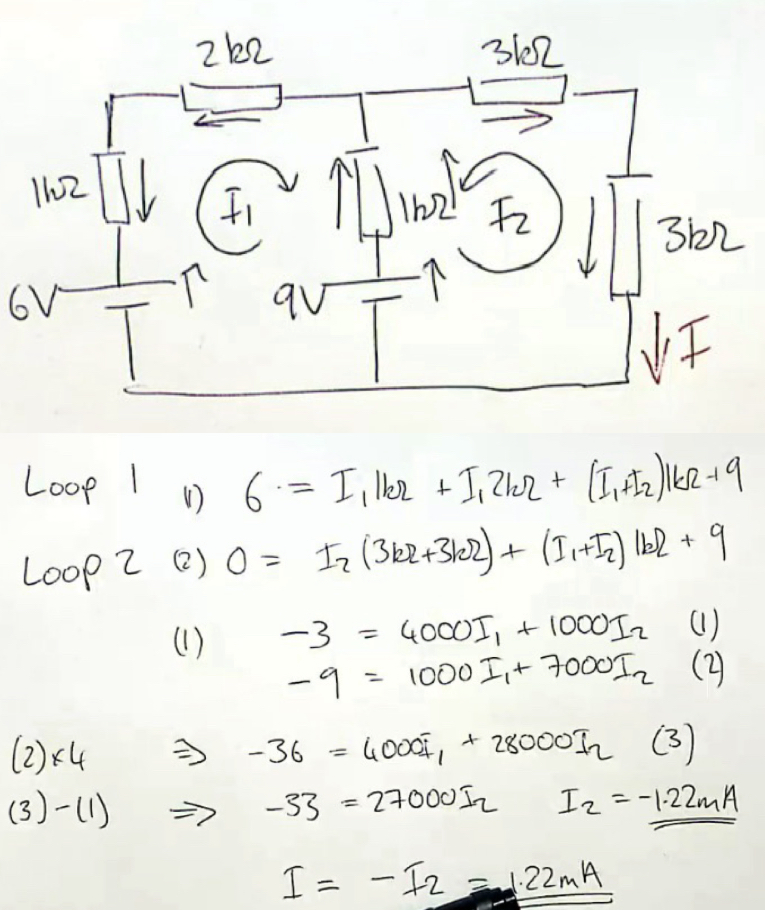 2kΩ 3kΩ
1kΩ I₁ 1kΩ I₂ 3kΩ
6V 9V I
Loop 1 (1) 6 = I₁1kΩ + I₁2kΩ + (I₁+I₂)1kΩ+9
Loop 2 (2) 0 = I₂(3kΩ+3kΩ) + (I₁+I₂)1kΩ + 9
(1) -3 = 4000I₁ + 1000I₂ (1)
-9 = 1000I₁ + 7000I₂ (2)
(2)×4 ⇒ -36 = 4000I₁ + 28000I₂ (3)
(3)-(1) ⇒ -33 = 27000I₂ I₂ = -1.22mA
I = -I₂ = 1.22mA